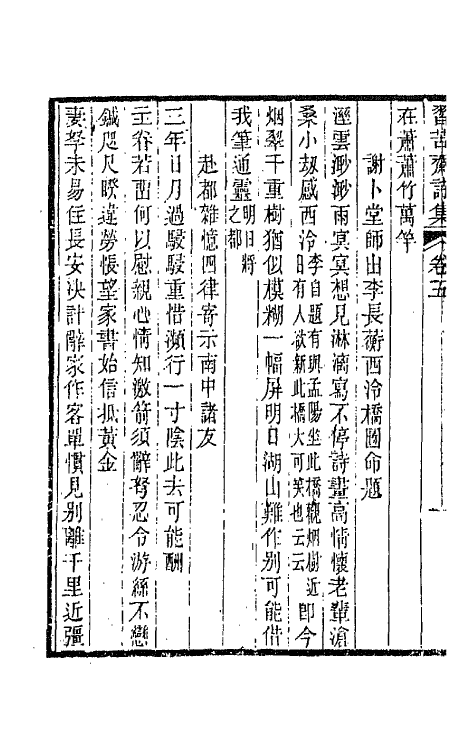 習苦齋詩集 卷五
在蕭蕭竹萬竿
謝卜堂師出李長蘅西泠橋圖命題
溼雲渺渺雨冥冥想見淋漓寫不停詩畫高情懷老輩滄
桑小劫感西泠李自題有與孟陽坐此橋觀烟樹近日有人欲新此橋大可笑也云云即今
烟翠千重樹猶似模糊一幅屏明日湖山難作别可能借
我筆通靈明日將之都
赴都雜憶四律寄示南中諸友
三年日月過駸駸重惜瀕行一寸陰此去可能酬
主眷若曹何以慰親心情知激箭須辭弩忍令游絲不戀
鍼咫尺暌違勞悵望家書始信抵黃金
妻孥未易住長安決計辭家作客單慣見别離千里近彊